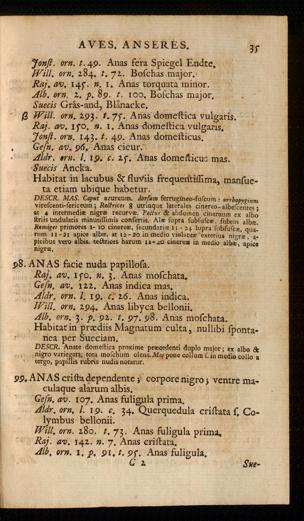 AVES. ANSERES. 35
Jonſt. orn. t. 49. Anas fera Spiegel Endte.
Will. orn. 284. t. 72. Boſchas major.
Raj. av. 145. n. 1. Anas torquata minor.
Alb. orn. 2. p. 89. t. 100. Boſchas major.
Suecis Gräs-and, Blånacke.
β Will. orn. 293. t. 75. Anas domeſtica vulgaris.
Raj. av. 150. n. 1. Anas domeſtica vulgaris.
Jonſt. orn. 143. t. 49. Anas domeſticus.
Geſn. av. 96. Anas cicur.
Aldr. orn. l. 19. c. 25. Anas domeſticus mas.
Suecis Ancka.
Habitat in lacubus & fluviis frequentiſſima, manſue-
ta etiam ubique habetur.
DESCR. MAS. Caput azureum. dorſum ferrugineo-fuſcum: orrhopygium
vireſcenti-ſericeum; Rectrices 8 utrinque laterales cinereo-albeſcentes;
at 4 intermediæ nigræ recurvæ. Pectus & abdomen cinereum ex albo
ſtriis undulatis minutiſſimis conſertis. Alæ ſupra ſubfuſcæ, ſubtus albæ.
Remiges primores 1-10 cinereæ, ſecundariæ 11-24 ſupra ſubfuſcæ, qua-
rum 11-21 apice albæ, at 12-20 in medio violaceæ exterius nigræ, a-
picibus vero albis. tectrices harum 12-20 cinereæ in medio albæ, apice
nigræ.
98. ANAS facie nuda papilloſa.
Raj. av. 150. n. 3. Anas moſchata.
Geſn. av. 122. Anas indica mas.
Aldr. orn. l. 19. c. 26. Anas indica.
Will. orn. 294. Anas libyca bellonii.
Alb. orn. 3. p. 92. t. 97. 98. Anas moſchata.
Habitat in prædiis Magnatum culta, nullibi ſponta-
nea per Sueciam.
DESCR. Anate domeſtica proxime præcedenti duplo major; ex albo &
nigro variegata, tota moſchum olens. Mas pone collum ſ. in medio collo a
tergo, papillis rubris nudis notatur.
99. ANAS criſta dependente; corpore nigro; ventre ma-
culaque alarum albis.
Geſn. av. 107. Anas fuligula prima.
Aldr. orn. l. 19. c. 34. Querquedula criſtata ſ. Co-
lymbus bellonii.
Will. orn. 280. t. 73. Anas fuligula prima.
Raj. av. 142. n. 7. Anas criſtata.
Alb. orn. 1. p. 91. t. 95. Anas fuligula.
C 2 Sue-